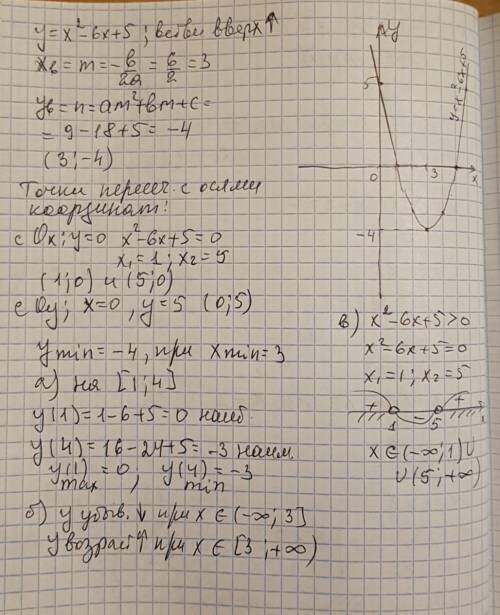 y = x²-6x+5 ; ветви вверх↑
xв = m = -в/2a = 6/2 = 3
yв = n = am²+вm+c =
= 9-18+5 = -4
(3;-4)
Точки пересеч. с осями
координат:
с Ox; y=0 x²-6x+5=0
x₁=1; x₂=5
(1;0) и (5;0)
с Oy; x=0, y=5 (0;5)
y min = -4, при x min = 3
а) на [1;4]
y(1) = 1-6+5 = 0 наиб.
y(4) = 16-24+5 = -3 наим.
y(1) = 0; y(4) = -3
max min
б) y убыв. ↓ при x ∈ (-∞; 3]
y возраст↑ при x ∈ [3; +∞)
y
5
y=x²-6x+5
0
3
x
-4
в) x²-6x+5>0
x²-6x+5=0
x₁=1; x₂=5
+ - +
1 5 x
x ∈ (-∞; 1) ∪
∪ (5; +∞)